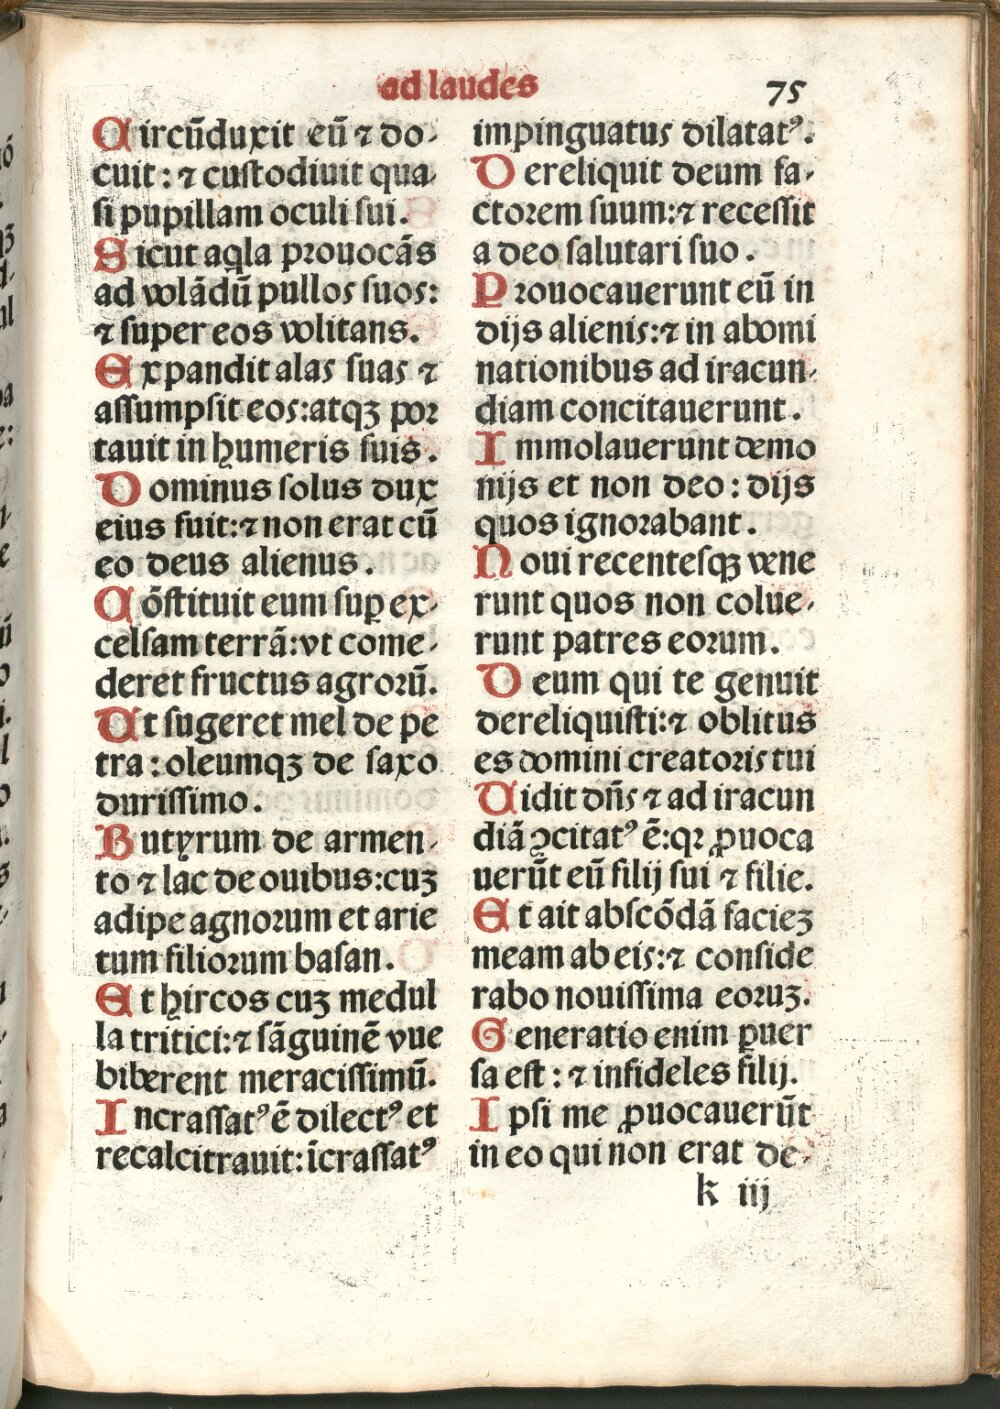 ad laudes
75
Circūduxit eū ⁊ do-
cuit: ⁊ custodiuit qua-
si pupillam oculi sui.
Sicut aqla prouocās
ad volādū pullos suos:
⁊ super eos volitans.
Expandit alas suas ⁊
assumpsit eos: atqꝫ por
tauit in humeris suis.
Dominus solus dux
eius fuit: ⁊ non erat cū
eo deus alienus.
Cōstituit eum suꝑ ex-
celsam terrā: vt come-
deret fructus agrorū.
Ut sugeret mel de pe
tra: oleumqꝫ de saxo
durissimo.
Butyrum de armen-
to ⁊ lac de ouibus: cuꝫ
adipe agnorum et arie
tum filiorum basan.
Et hircos cuꝫ medul
la tritici: ⁊ sāguinē vue
biberent meracissimū.
Incrassatꝰ ē dilectꝰ et
recalcitrauit: īcrassatꝰ
impinguatus dilatatꝰ.
Dereliquit deum fa-
ctorem suum: ⁊ recessit
a deo salutari suo.
Prouocauerunt eū in
dijs alienis: ⁊ in abomi
nationibus ad iracun-
diam concitauerunt.
Immolauerunt demo
nijs et non deo: dijs
quos ignorabant.
Noui recentesqꝫ vene
runt quos non colue-
runt patres eorum.
Deum qui te genuit
dereliquisti: ⁊ oblitus
es domini creatoris tui
Uidit dn̄s ⁊ ad iracun
diā ꝯcitatꝰ ē: qꝛ ꝓuoca
uerūt eū filij sui ⁊ filie.
Et ait abscōdā facieꝫ
meam ab eis: ⁊ conside
rabo nouissima eoruꝫ.
Generatio enim ꝑuer
sa est: ⁊ infideles filij.
Ipsi me ꝓuocauerūt
in eo qui non erat de-
k iij